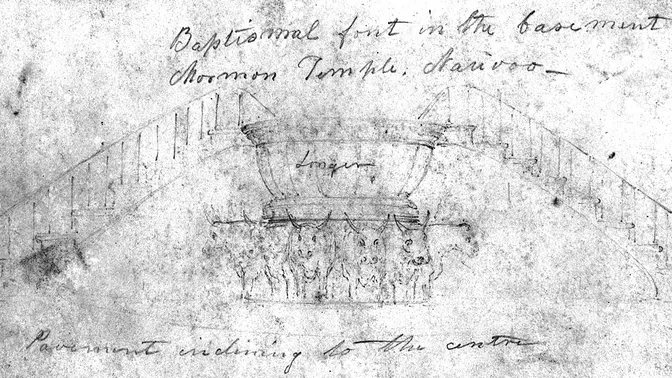 Baptismal font in the basement
Mormon Temple. Nauvoo —
Longer
Pavement inclining to the centre